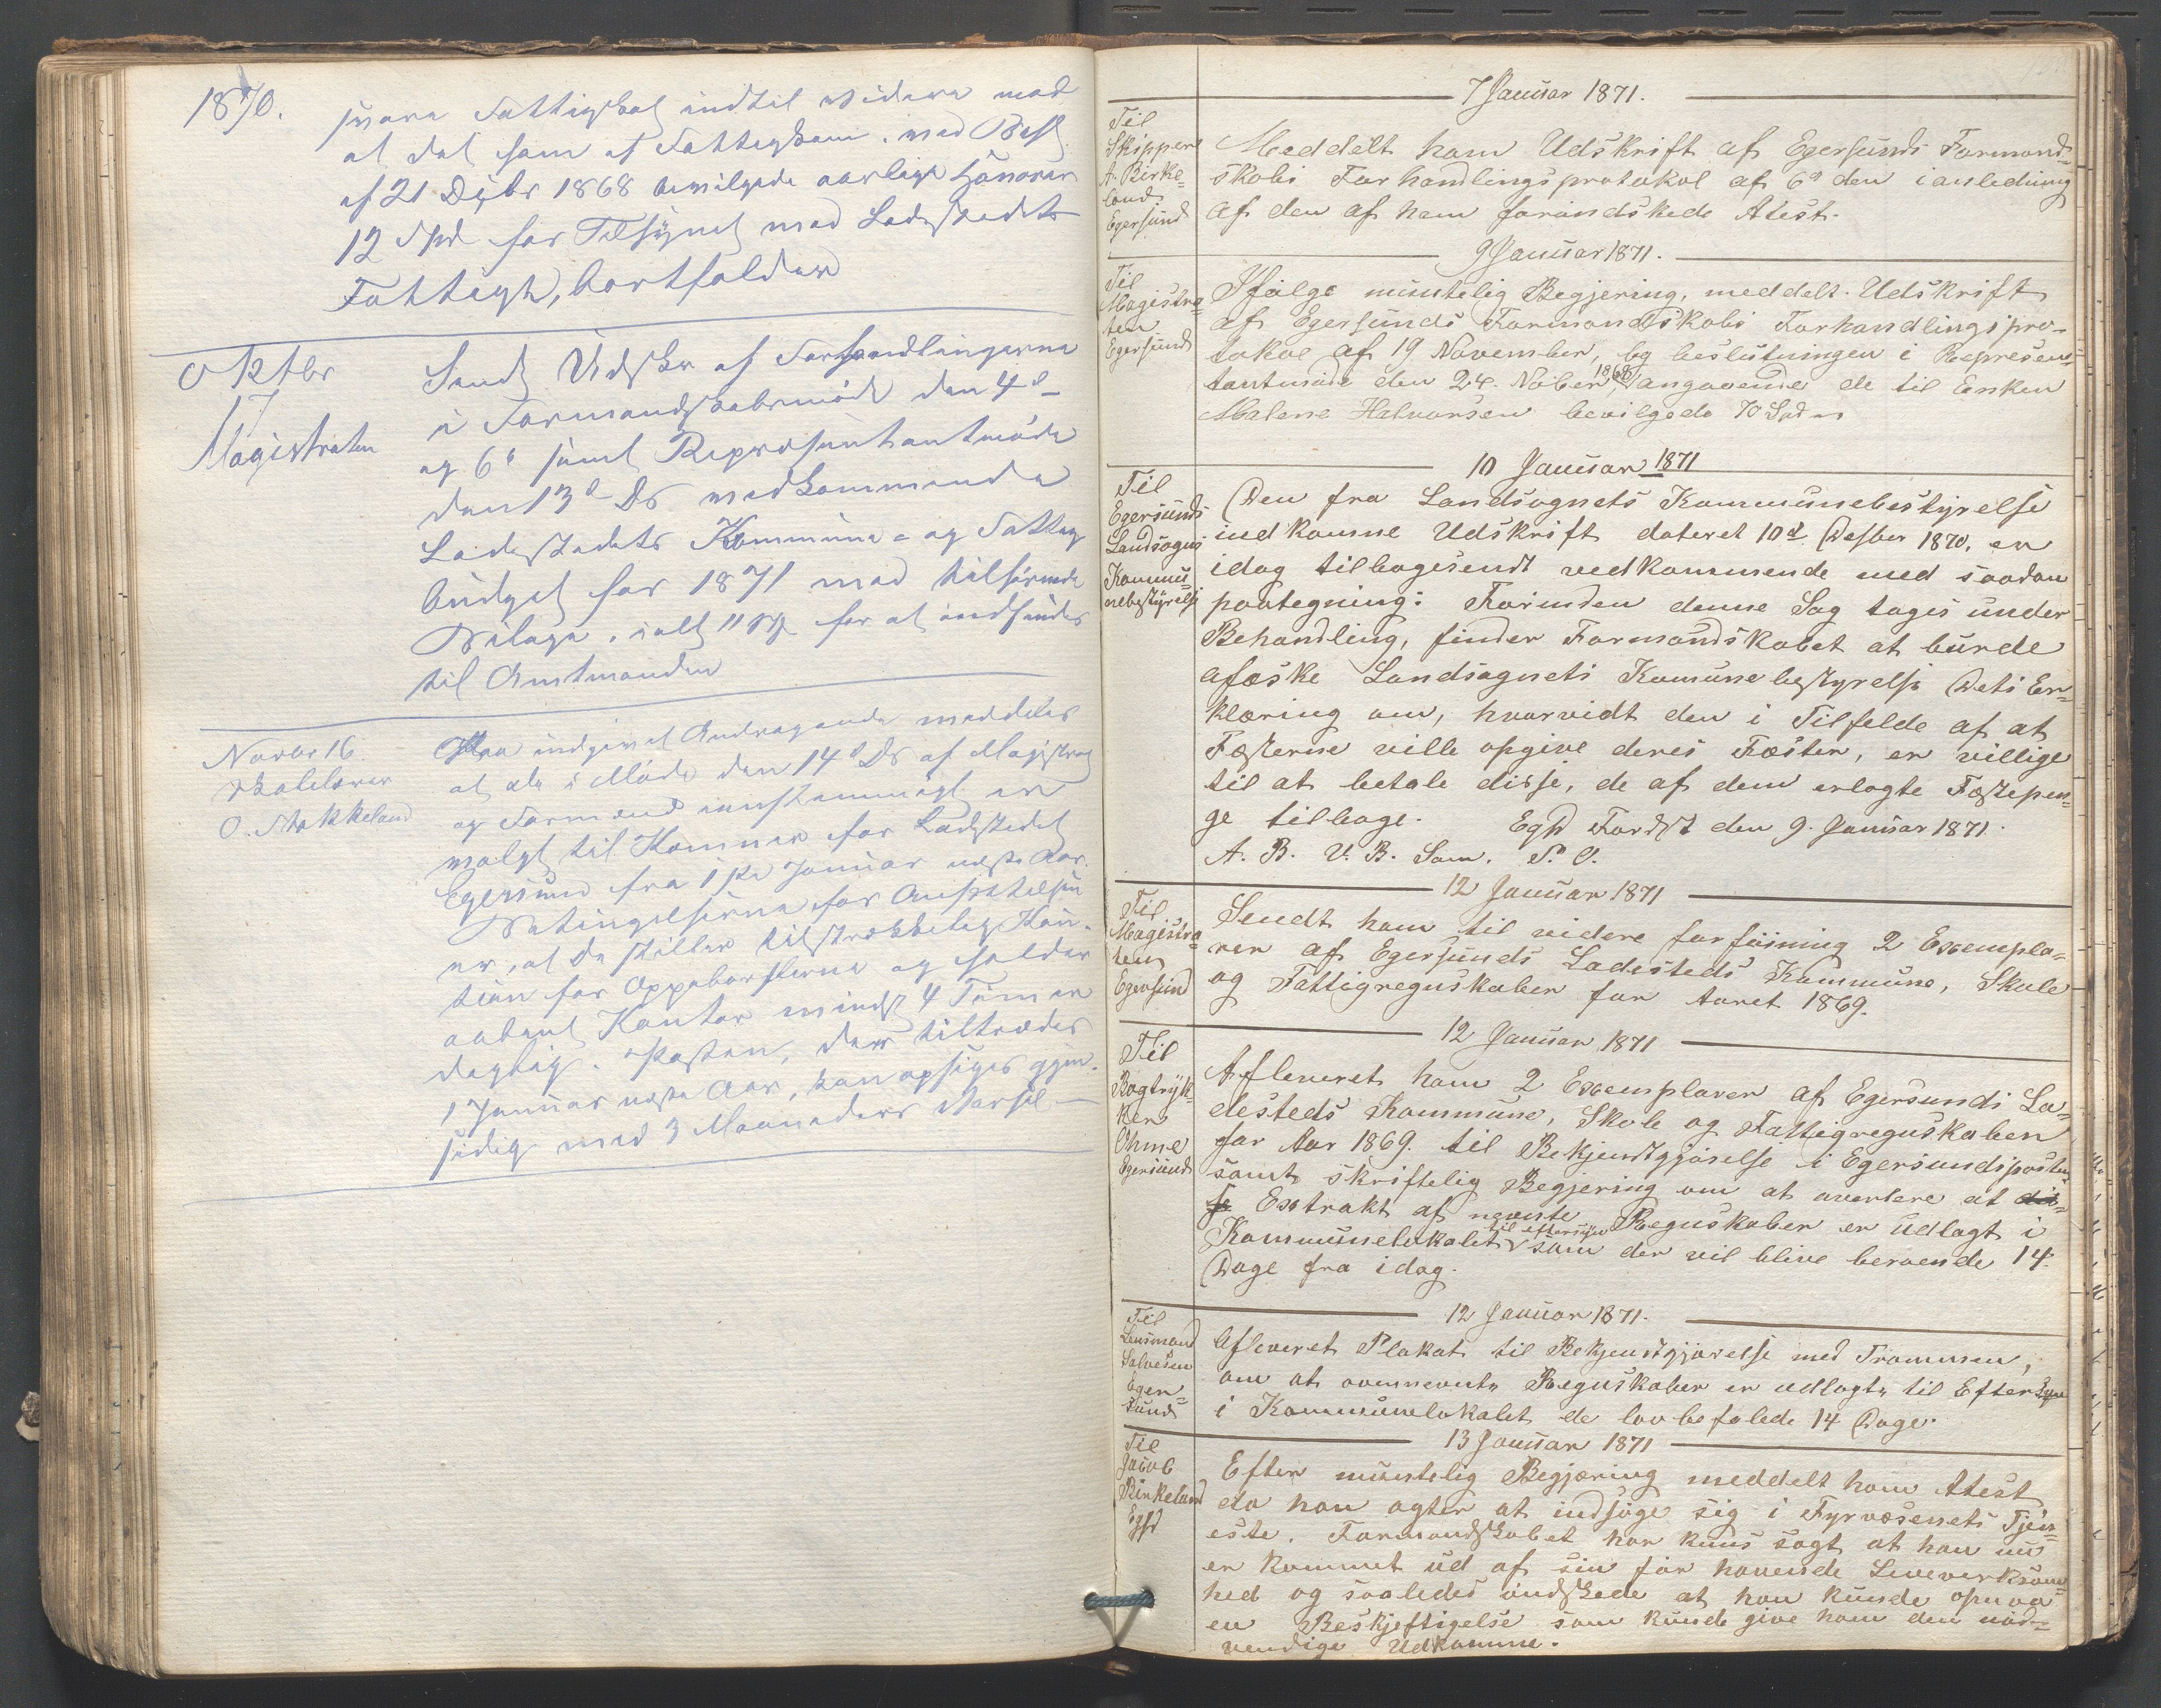 1870.
svare Fattigskat indtil videre med
at det som af Fattigkom. med Besl
af 21 Dcbr 1868 bevilgede aarlige Honorar
12 Spd for Tilsynet med Ladestedets
Fattige, bortfalder
Oktbr
17
Magistraten
Sendt Udskr af Forhandlingerne
i Formandskabsmøde den 4d
og 6d samt Repræsentantmøde
den 13d Ds vedkommende
Ladestedets Kommune- og Fattig
budget for 1871 med tilhørende
Bilage, ialt 11 for at indsendes
til Amtmanden
Novbr 16
Skolelærer
O. Stokkeland
indgivet Andragende meddeles
at de i Møde den 14d Ds af Magistrat
og Formænd eenstemmigt er
valgt til Kæmner for Ladestedet
Egersund fra 1ste Januar næste Aar.
Betingelserne for Ansættelsen
er, at De stiller tilstrækkelig Kau-
tion for Oppebørslerne og holder
aabent Kontor mindst 4 Timer
daglig. Posten, der tiltrædes
1 Januar næste Aar, kan opsiges gjen-
sidig med 3 Maaneders Varsel –
7 Januar 1871.
Til
Skipper
A. Birke-
land
Egersund
Meddelt ham Udskrift af Egersunds Formand-
skabs Forhandlingsprotokol af 6d den i anledning
af den af ham forøndskede Atest.
9 Januar 1871.
Til
Magistra-
ten
Egersund
Ifølge mundtelig Begjering, meddelt Udskrift
af Egersunds Formandskabs Forhandlingspro-
tokol af 19 November, og beslutningen i Represen-
tantmøde den 24. Nober 1868, angaaende de til Enken
Malene Halvorsen bevilgede 70 Spd
10 Januar 1871
Til
Egersunds
Landsogns
Kommu
nebestyrelse
Den fra Landsognets Kommunebestyrelse
indkomne Udskrift dateret 10d Desber 1870, er
idag tilbagesendt vedkommende med saadan
paategning: Forinden denne Sag tages under
Behandling, finder Formandskabet at burde
afæske Landsognets Komunebestyrelse Dets Er-
klæring om, hvorvidt den i Tilfelde af at
Fæsterne ville opgive deres Fæster, er villige
til at betale disse, de af dem erlagte Fæstepen-
ge tilbage. Egsd Fordst den 9. Januar 1871.
A. B. V. B. Som. S. O.
12 Januar 1871
Til
Magistra-
ten
Egersund
Sendt ham til videre forføining 2 Exempla-
rer af Egersunds Ladesteds Kommune, Skole
og Fattigregnskaber for Aaret 1869.
12 Januar 1871
Til
Bogtryk-
ker
Ohme
Egersund
Afleveret ham 2 Exemplarer af Egersunds La-
desteds Kommune, Skole og Fattigregnskaber
for Aar 1869. til Bekjendtgjørelse i Egersundsposten
samt skriftelig Begjering om at avertere at dis-
se Extrakt af nevnte Regnskaber er udlagt i
Kommunelokalet til eftersyn som der vil blive beroende 14
Dage fra idag.
12 Januar 1871.
Til
Lensmand
Salvesen
Eger-
sund
Afleveret Plakat til Bekjendtgjørelse med Trommen,
om at ovennevnte Regnskaber er udlagt til Eftersyn
i Kommunelokalet de lovbefalede 14 Dage.
13 Januar 1871
Til
Jacob
Birkeland
Egsd
Efter mundtelig Begjæring meddelt ham Atest
da han agter at indsøge sig i Fyrvæsenets Tjen-
este. Formandskabet har kuns sagt at han nu
er kommet ud af sin før havende Leveverksom-
hed og saaledes ønskede at han kunde opnaa
en Beskjeftigelse som kunde give ham den nød-
vendige Udkomme.